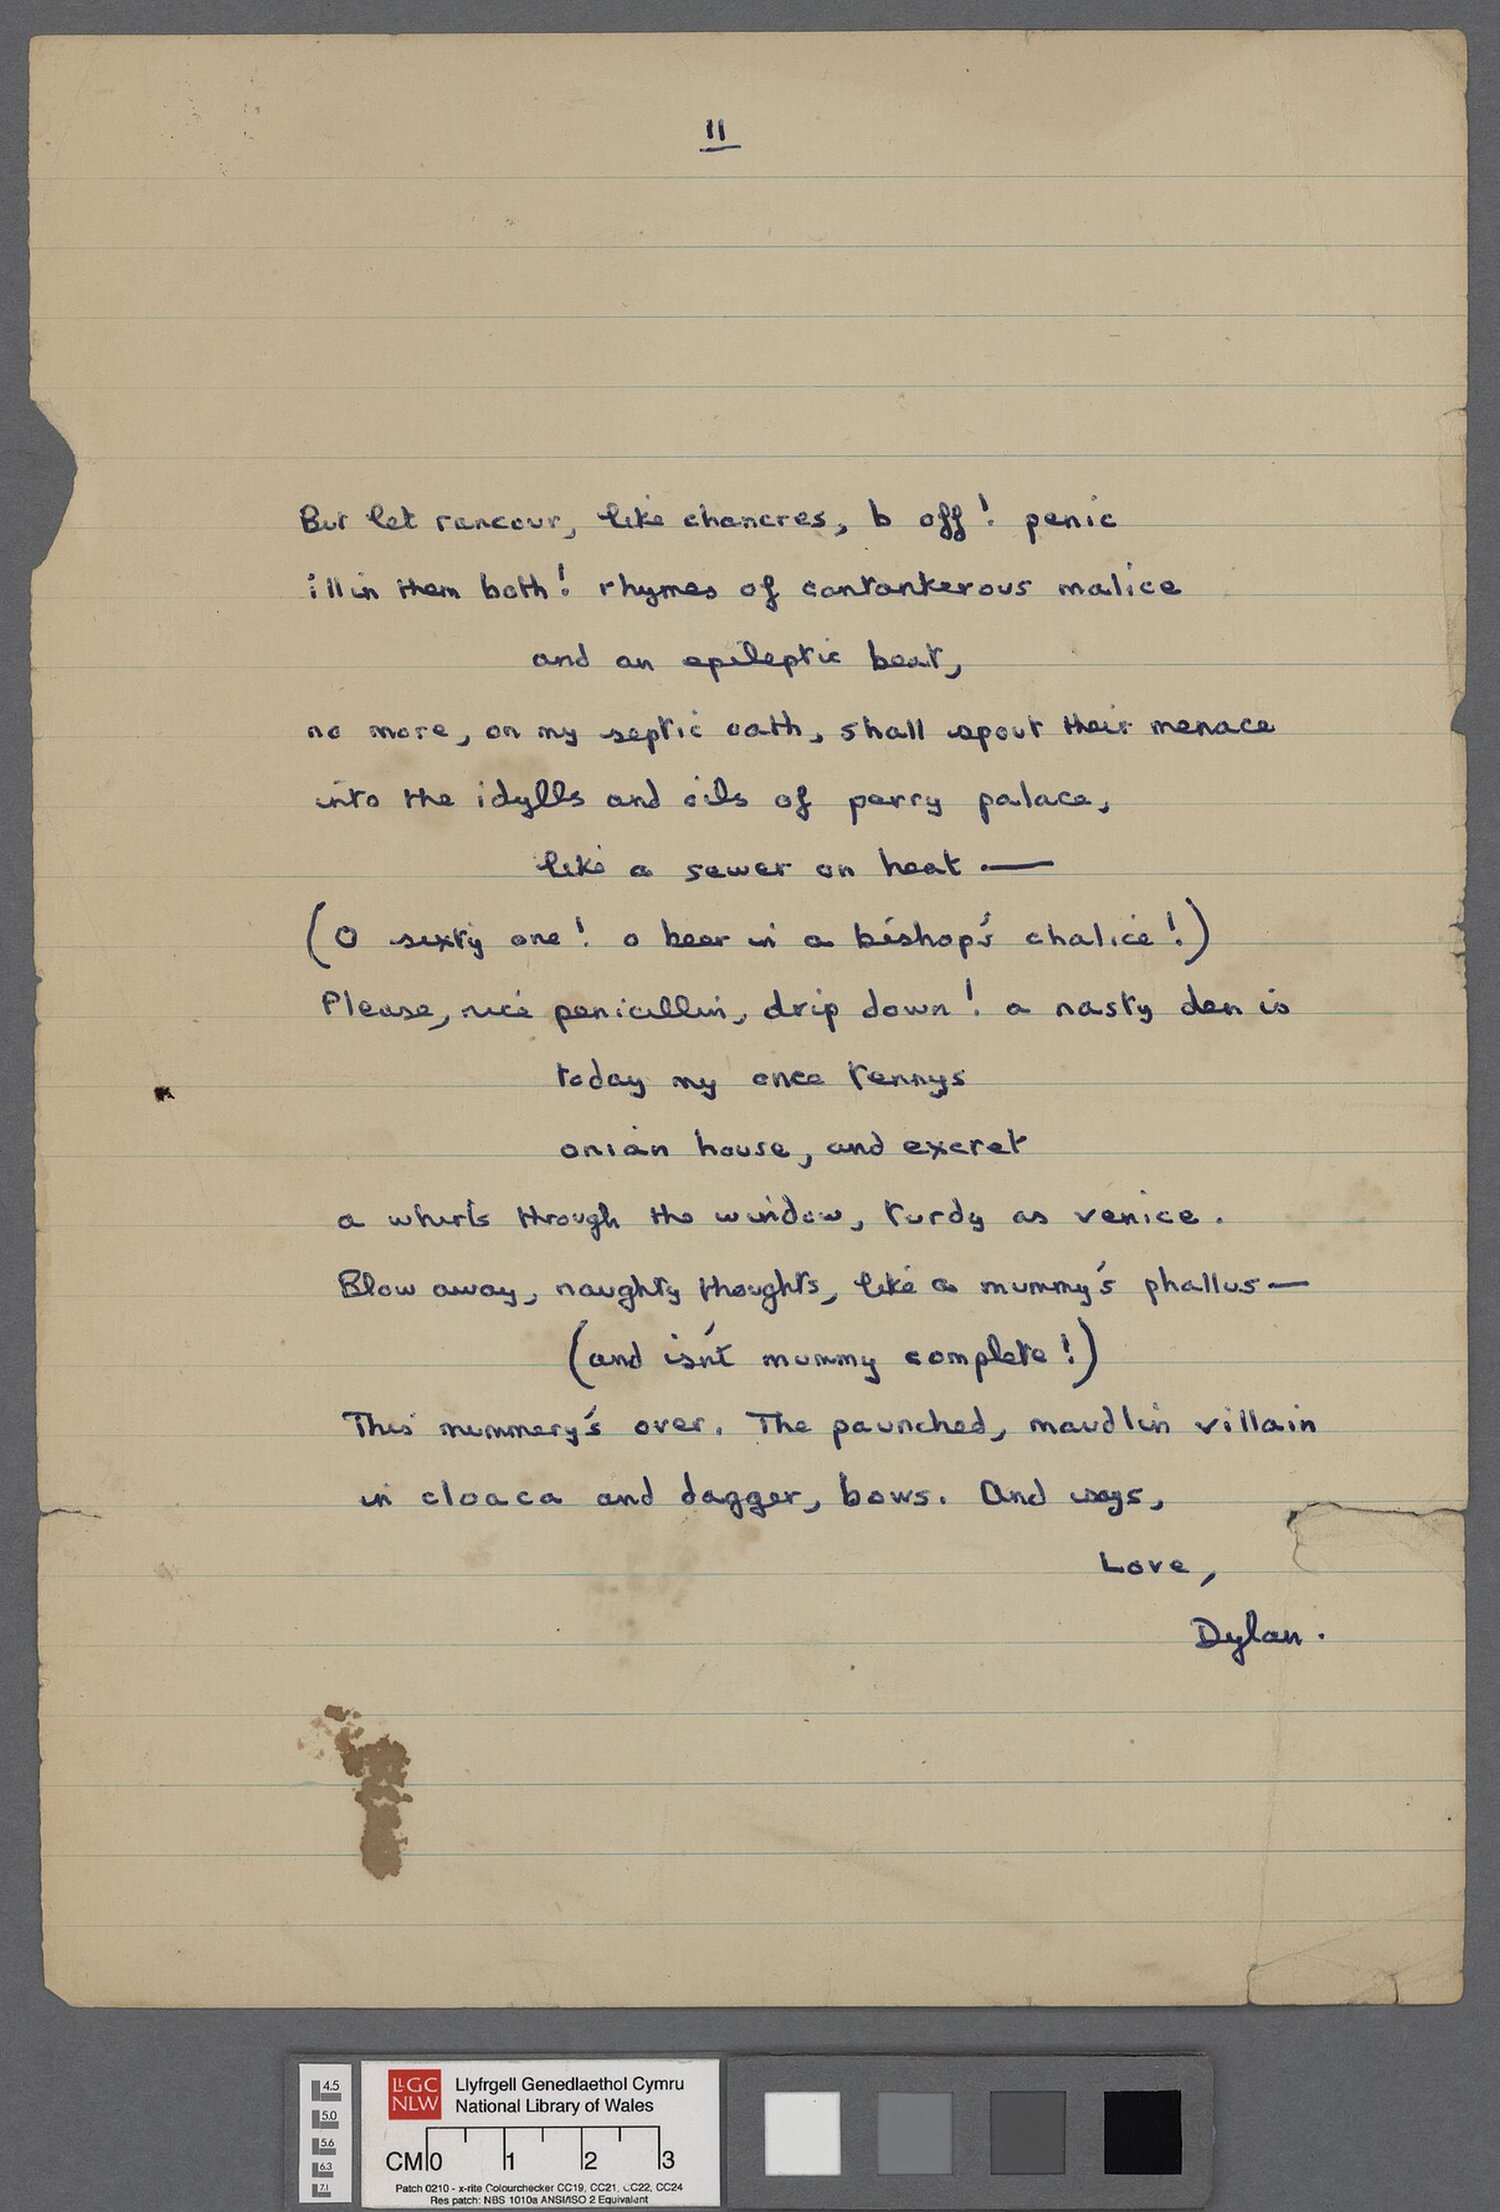 II
But let rancour, like chancres, b off! penic
illin them both! rhymes of cantankerous malice
and an epileptic beat,
no more, on my septic oath, shall spout their menace
into the idylls and oils of perry palace,
like a sewer on heat —
(O sixty one! o beer in a bishop's chalice!)
Please, nice penicillin, drip down! a nasty den is
today my once tennys
onian house, and excret
a whirls through the window, turdy as venice.
Blow away, naughty thoughts, like a mummy's phallus —
(and isn't mummy complete!)
This mummery's over. The paunched, maudlin villain
in cloaca and dagger, bows. And says,
Love,
Dylan.
4.5
5.0
5.6
6.3
7.1
LLGC
NLW
Llyfrgell Genedlaethol Cymru
National Library of Wales
CM 0 1 2 3
Patch 0210 - x-rite Colourchecker CC19, CC21, CC22, CC24
Res patch: NBS 1010a ANSI/ISO 2 Equivalent